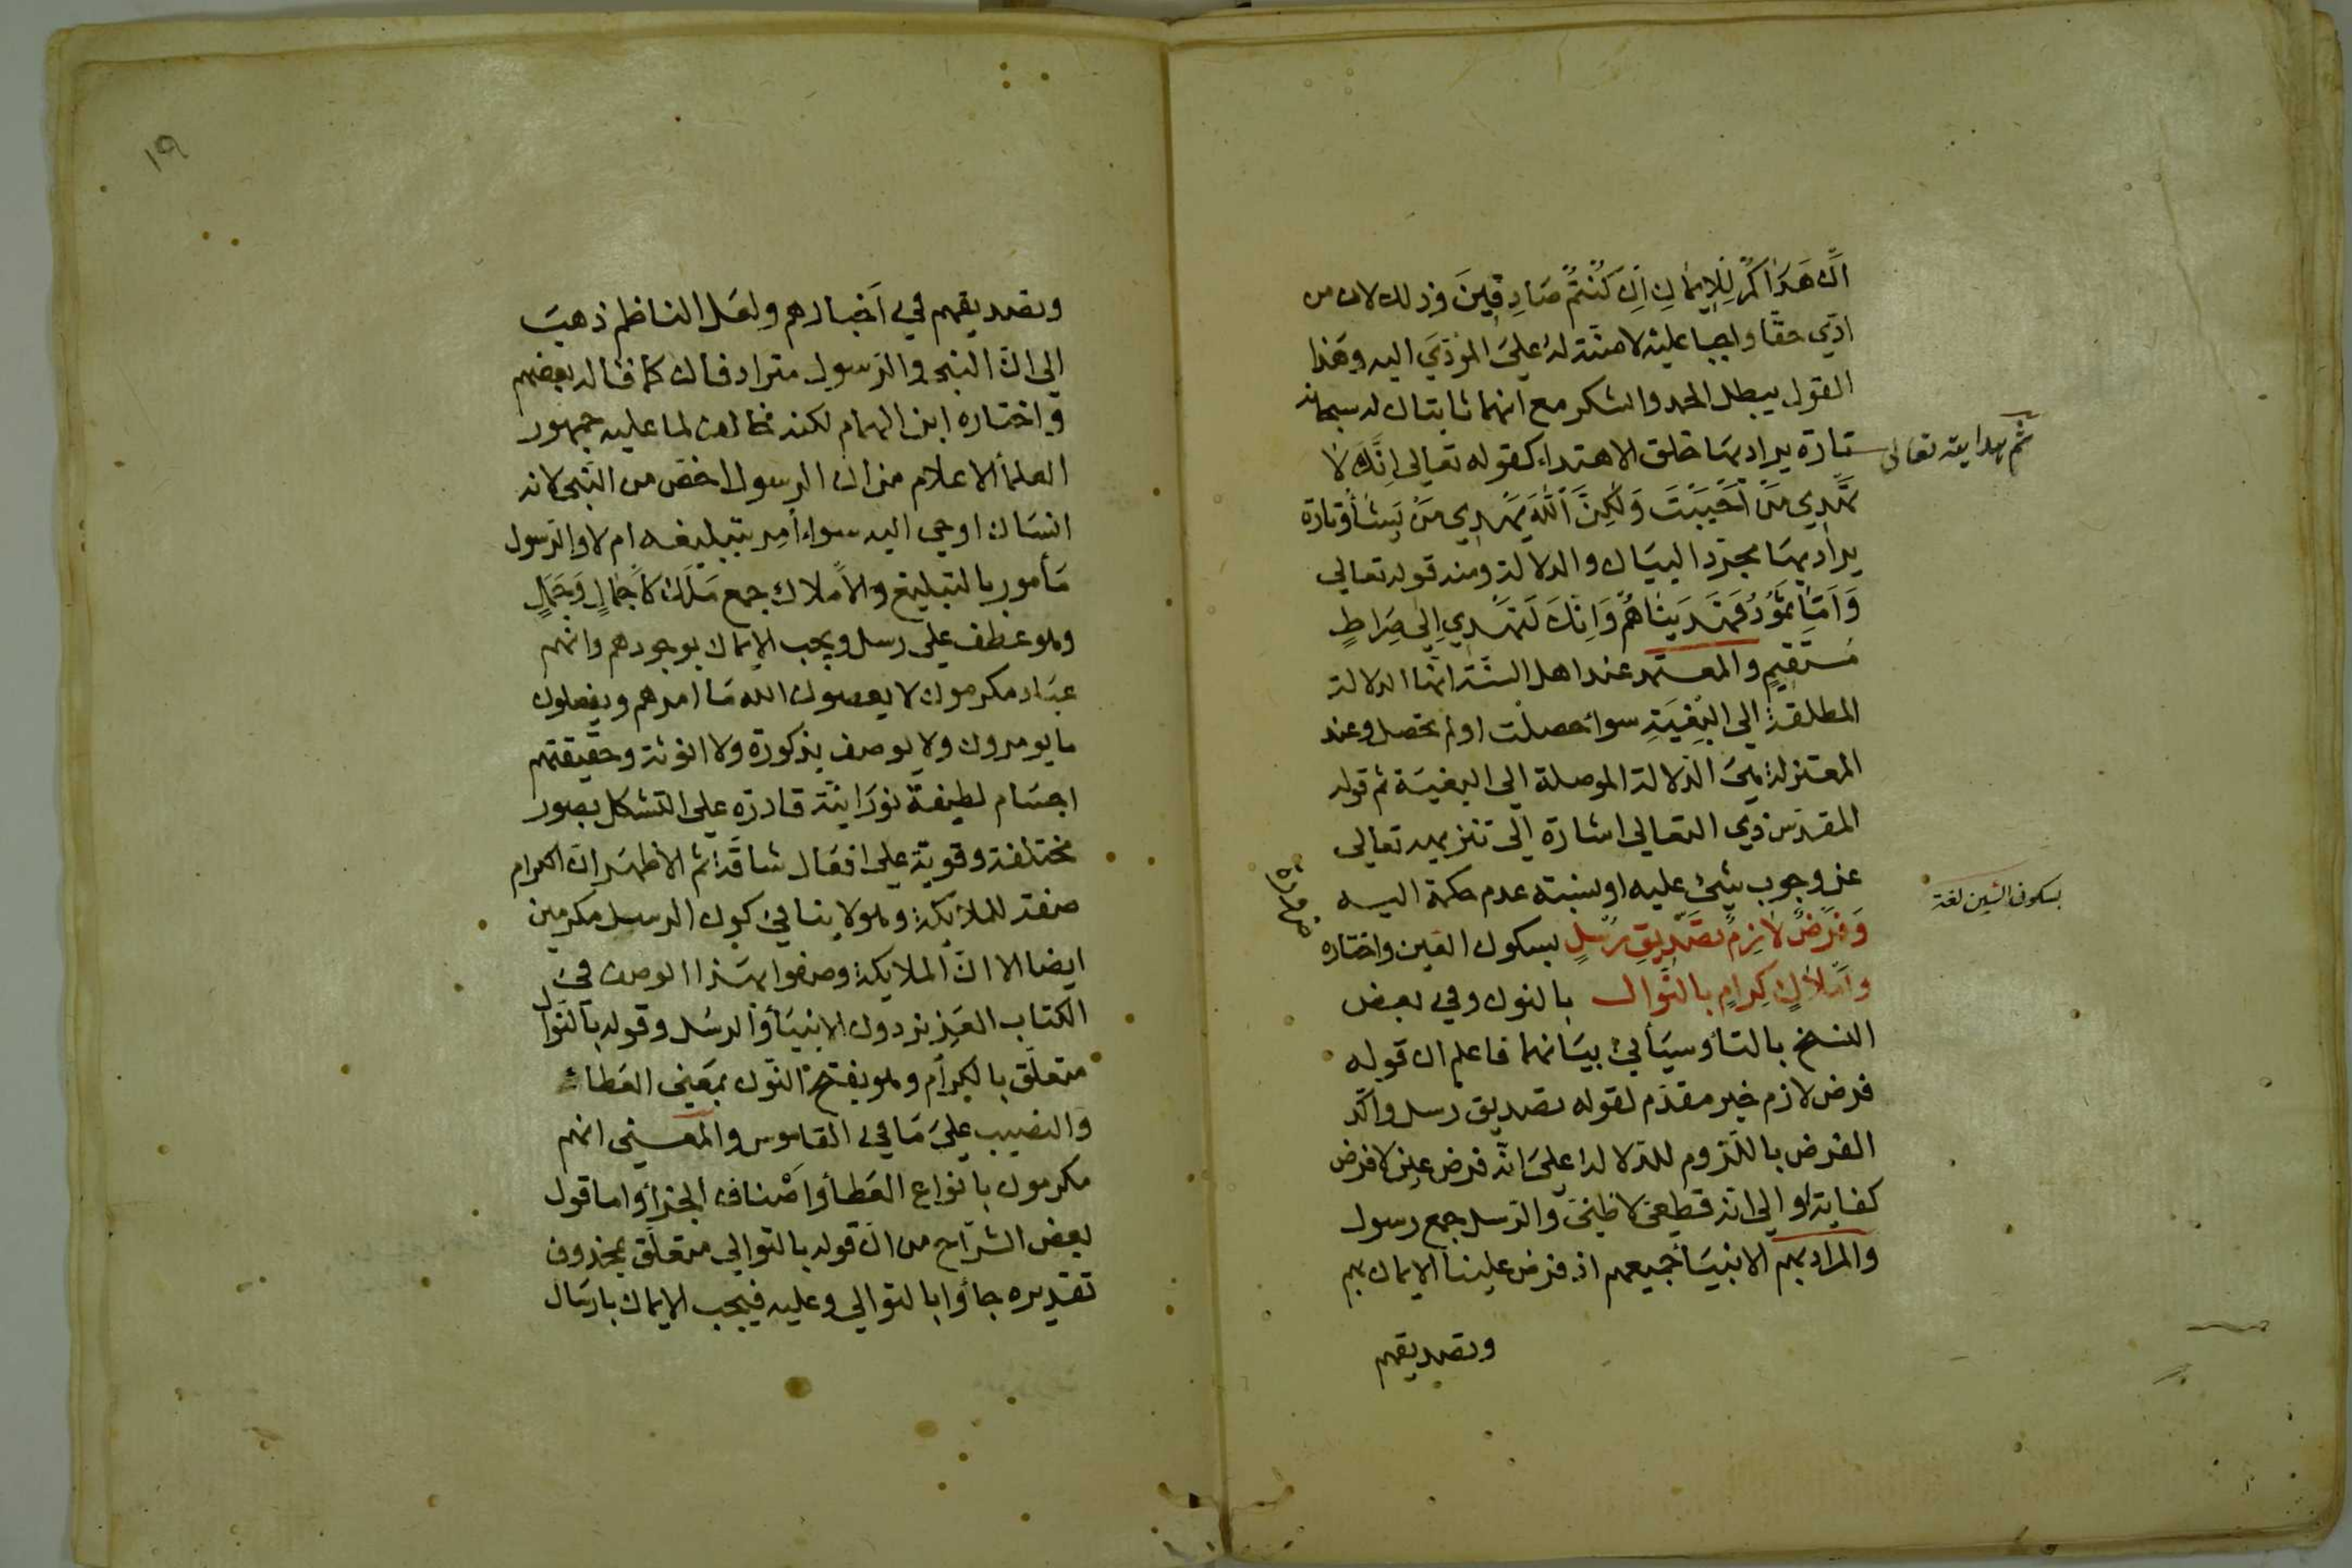 اَنْ هَدَاكُمْ لِلْاِيمَانِ اِنْ كُنْتُمْ صَادِقِينَ وذلك لان من
ادّي حقّا واجبا عليه لا منّة له عليَ المؤدَّيَ اليه وهَذا
القول يبطل الحمد والشكر مع انهما ثابتان له سبحانه
ثم هدايته تعالى
تارة يراد بهَا خلق الاهتداء كقوله تعالى اِنَّكَ لَا
تَهْدِي مَنْ اَحْبَبْتَ وَلَكِنَّ اللّٰهَ يَهْدِي مَنْ يَشَأُ وتارة
يراد بهَا مجرّد البيَان والدلالة ومنه قوله تعالي
وَاَمَّا ثَمُودُ فَهَدَيْنَاهُمْ وَاِنَّكَ لَتَهْدِي اِلَى صِرَاطٍ
مُسْتَقِيمٍ والمعتمد عند اهل السنّة انّها الدلالة
المطلقة الي البِغْيَةِ سوا حصلت او لم تحصل وعند
المعتزلة هيَ الدّلالة الموصلة الي البغيَة ثم قوله
المقدّس ذي التعالي اشارة الي تنزيهه تعالى
عن وجوب شيْ عليه او نسبته عدم حكمة اليه
بسكون الشين لغة
وَفَرْضٌ لَازِمٌ تَصْدِيقُ رُسْلٍ بسكون العين واختاره
وَاَمْلَاكٍ كِرَامٍ بالنَّوال بالنون وفي بعض
النسخ بالتا وسيَأتيْ بيَانهما فاعلم ان قوله
فرض لازم خبر مقدّم لقوله تصديق رسل واكّد
الفرض باللّزوم للدّلالة عليَ انّه فرض عين لا فرض
كفاية او الي انّه قطعيّ لا ظنيّ والرّسل جمع رسول
والمراد بهم الانبيَا جميعهم اذ فرض علينا الايمان بهم
وتصديقهم
١٩
وتصديقهم في اَخبارهم ولعَل الناظم ذهبَ
الي انّ النبي والرّسول مترادفان كما قاله بعضهم
واختاره ابن الهمام لكنه مخالف لما عليه جمهور
العلمأ الاعلام من ان الرسول اخصّ من النّبي لانه
انسَان اوحي اليه سواء اُمِر بتبليغه ام لا والرّسول
مَأمور بالتبليغ والاَملاك جمع مَلَك كَاَجْمَالٍ وَجَمَلٍ
وهو عَطف علي رسل ويجب الايمان بوجودهم وانّهم
عبَاد مكرمون لا يعصون الله مَا امرهم ويفعلون
ما يومرون ولا يوصف بذكورة ولا انوثة وحقيقتهم
اجسَام لطيفة نورَانيّة قادرة علي التشكل بصور
مختلفة وقويّة علي افعَال شاقّة ثم الاظهَر انّ الكرام
صفة للملائكة وهو لا ينافيْ كون الرسل مكرمين
ايضا الا انّ الملايكة وصفوا بهَذا الوصف فيْ
الكتاب العَزيز دون الانبيَأ والرسُل وقوله بالنّوال
متعلّق بالكِرام وهو بفتح النّون بمَعنى العَطاء
والنصيب عليَ مَا في القاموس والمعنى انهم
مكرمون بانواع العَطأ واَصْناف الجزأ واما قول
بعض الشرّاح من انّ قوله بالتوالي متعلّق بمحذوف
تقديره جاؤا بالتوالي وعليه فيجب الايمان بارسَال